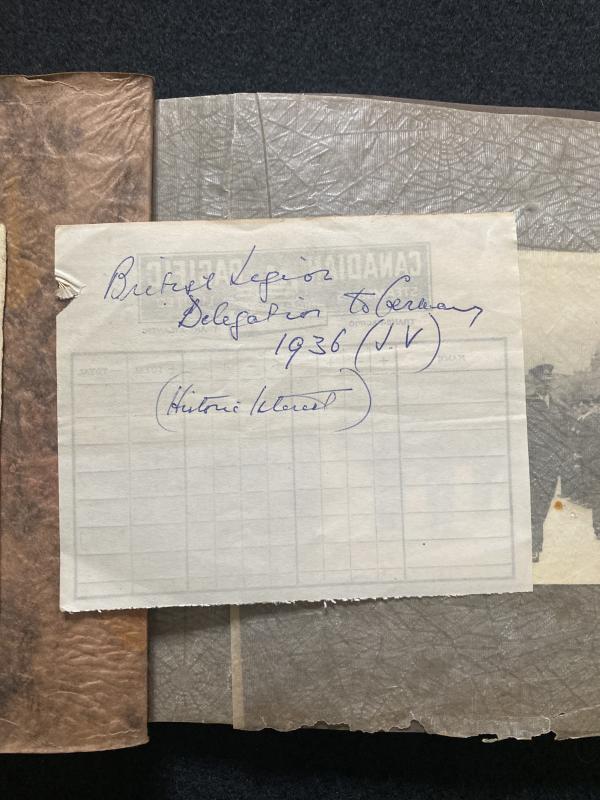 British Legion
Delegation to Germany
1936 (J.V)
(Historic Interest)
CANADIAN PACIFIC
NAME
TOTAL
TOTAL